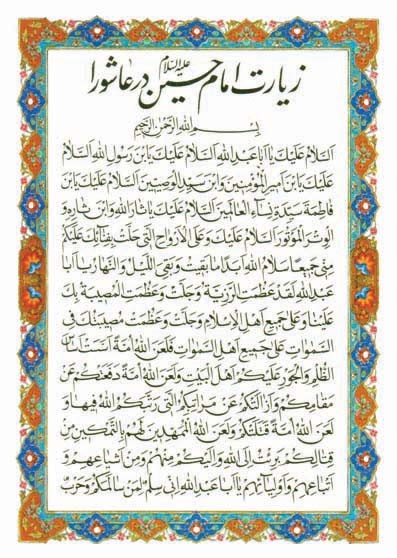 زیارت امام حسین علیه السلام در عاشورا
بِسْمِ اللهِ الرَّحْمٰنِ الرَّحِیمِ
اَلسَّلامُ عَلَیْكَ یٰا اَبٰا عَبْدِ اللهِ اَلسَّلامُ عَلَیْكَ یَابْنَ رَسُولِ اللهِ اَلسَّلامُ
عَلَیْكَ یَابْنَ اَمیرِ الْمُؤْمِنینَ وَابْنَ سَیِّدِ الْوَصِیّینَ اَلسَّلامُ عَلَیْكَ یَابْنَ
فٰاطِمَةَ سَیِّدَةِ نِسٰاءِ الْعٰالَمینَ اَلسَّلامُ عَلَیْكَ یٰا ثٰارَ اللهِ وَابْنَ ثٰارِهِ وَ
الْوِتْرَ الْمَوْتُورَ اَلسَّلامُ عَلَیْكَ وَعَلَی الْاَرْوٰاحِ الَّتی حَلَّتْ بِفِنٰائِكَ عَلَیْكُمْ
مِنّی جَمیعًا سَلامُ اللهِ اَبَدًا مٰا بَقیتُ وَبَقِیَ اللَّیْلُ وَالنَّهٰارُ یٰا اَبٰا
عَبْدِ اللهِ لَقَدْ عَظُمَتِ الرَّزِیَّةُ وَجَلَّتْ وَعَظُمَتِ الْمُصیبَةُ بِكَ
عَلَیْنٰا وَعَلیٰ جَمیعِ اَهْلِ الْاِسْلامِ وَجَلَّتْ وَعَظُمَتْ مُصیبَتُكَ فِی
السَّمٰوٰاتِ عَلیٰ جَمیعِ اَهْلِ السَّمٰوٰاتِ فَلَعَنَ اللهُ اُمَّةً اَسَّسَتْ اَسٰاسَ
الظُّلْمِ وَالْجَوْرِ عَلَیْكُمْ اَهْلَ الْبَیْتِ وَلَعَنَ اللهُ اُمَّةً دَفَعَتْكُمْ عَنْ
مَقٰامِكُمْ وَاَزٰالَتْكُمْ عَنْ مَرٰاتِبِكُمُ الَّتی رَتَّبَكُمُ اللهُ فیهٰا وَ
لَعَنَ اللهُ اُمَّةً قَتَلَتْكُمْ وَلَعَنَ اللهُ الْمُمَهِّدینَ لَهُمْ بِالتَّمْكینِ مِنْ
قِتٰالِكُمْ بَرِئْتُ اِلَی اللهِ وَاِلَیْكُمْ مِنْهُمْ وَمِنْ اَشْیٰاعِهِمْ وَ
اَتْبٰاعِهِمْ وَاَوْلِیٰائِهِمْ یٰا اَبٰا عَبْدِ اللهِ اِنّی سِلْمٌ لِمَنْ سٰالَمَكُمْ وَحَرْبٌ